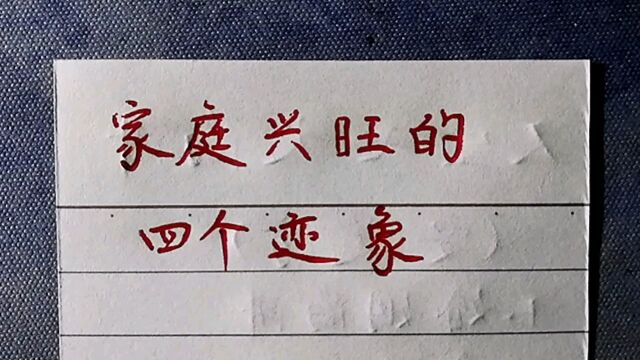 家庭兴旺的
四个迹象